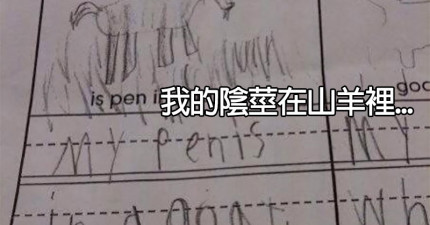 is pen i
我的陰莖在山羊裡...
My Penis My
in a goat. Wh